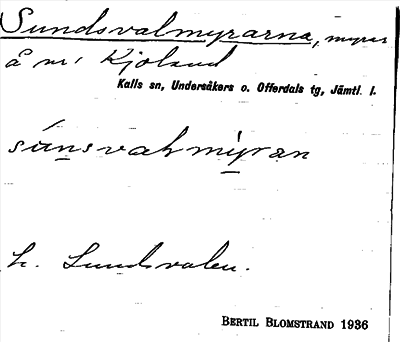 Sundsvalmyrarna, myrar
å nr 1 Kjoland
Kalls sn, Undersåkers o. Offerdals tg, Jämtl. l.
súnsvaḷmỳran
L. Sundsvalen.
BERTIL BLOMSTRAND 1936